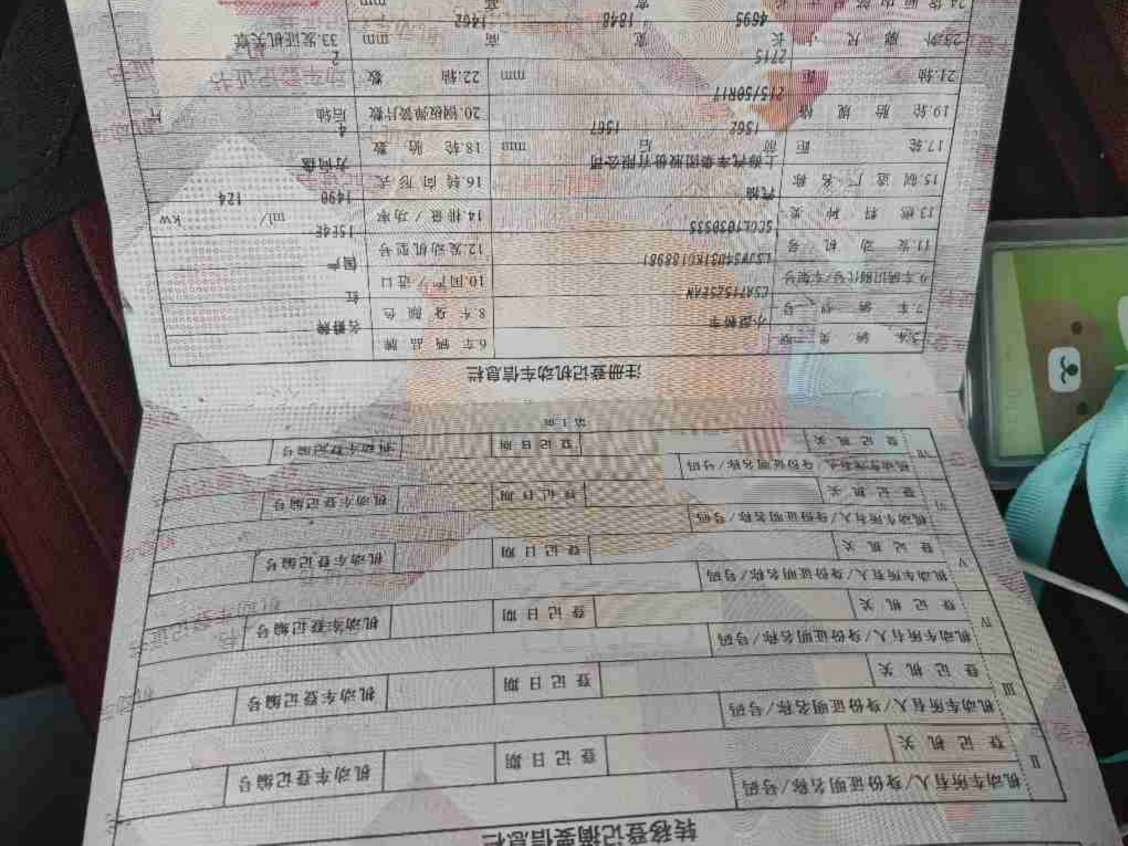 转移登记摘要信息栏
II 机动车所有人/身份证明名称/号码
登记机关 登记日期 机动车登记编号
III 机动车所有人/身份证明名称/号码
登记机关 登记日期 机动车登记编号
IV 机动车所有人/身份证明名称/号码
登记机关 登记日期 机动车登记编号
V 机动车所有人/身份证明名称/号码
登记机关 登记日期 机动车登记编号
VI 机动车所有人/身份证明名称/号码
登记机关 登记日期 机动车登记编号
VII 机动车所有人/身份证明名称/号码
登记机关 登记日期 机动车登记编号
第1页
注册登记机动车信息栏
5.车辆类型 小型轿车 6.车辆品牌 名爵牌
7.车辆型号 CSA7152SEAN 8.车身颜色 红
9.车辆识别代号/车架号 10.国产/进口 国产
11.发动机号 12.发动机型号 15E4E
13.燃料种类 汽油 14.排量/功率 1490 ml/ 124 kw
15.制造厂名称 上海汽车集团股份有限公司 16.转向形式 方向盘
17.轮距 前 1562 后 1567 mm 18.轮胎数 4
19.轮胎规格 215/50R17 20.钢板弹簧片数 后轴 片
21.轴距 2715 mm 22.轴数 2
23.外廓尺寸 长 4695 宽 1848 高 1462 mm 33.发证机关章